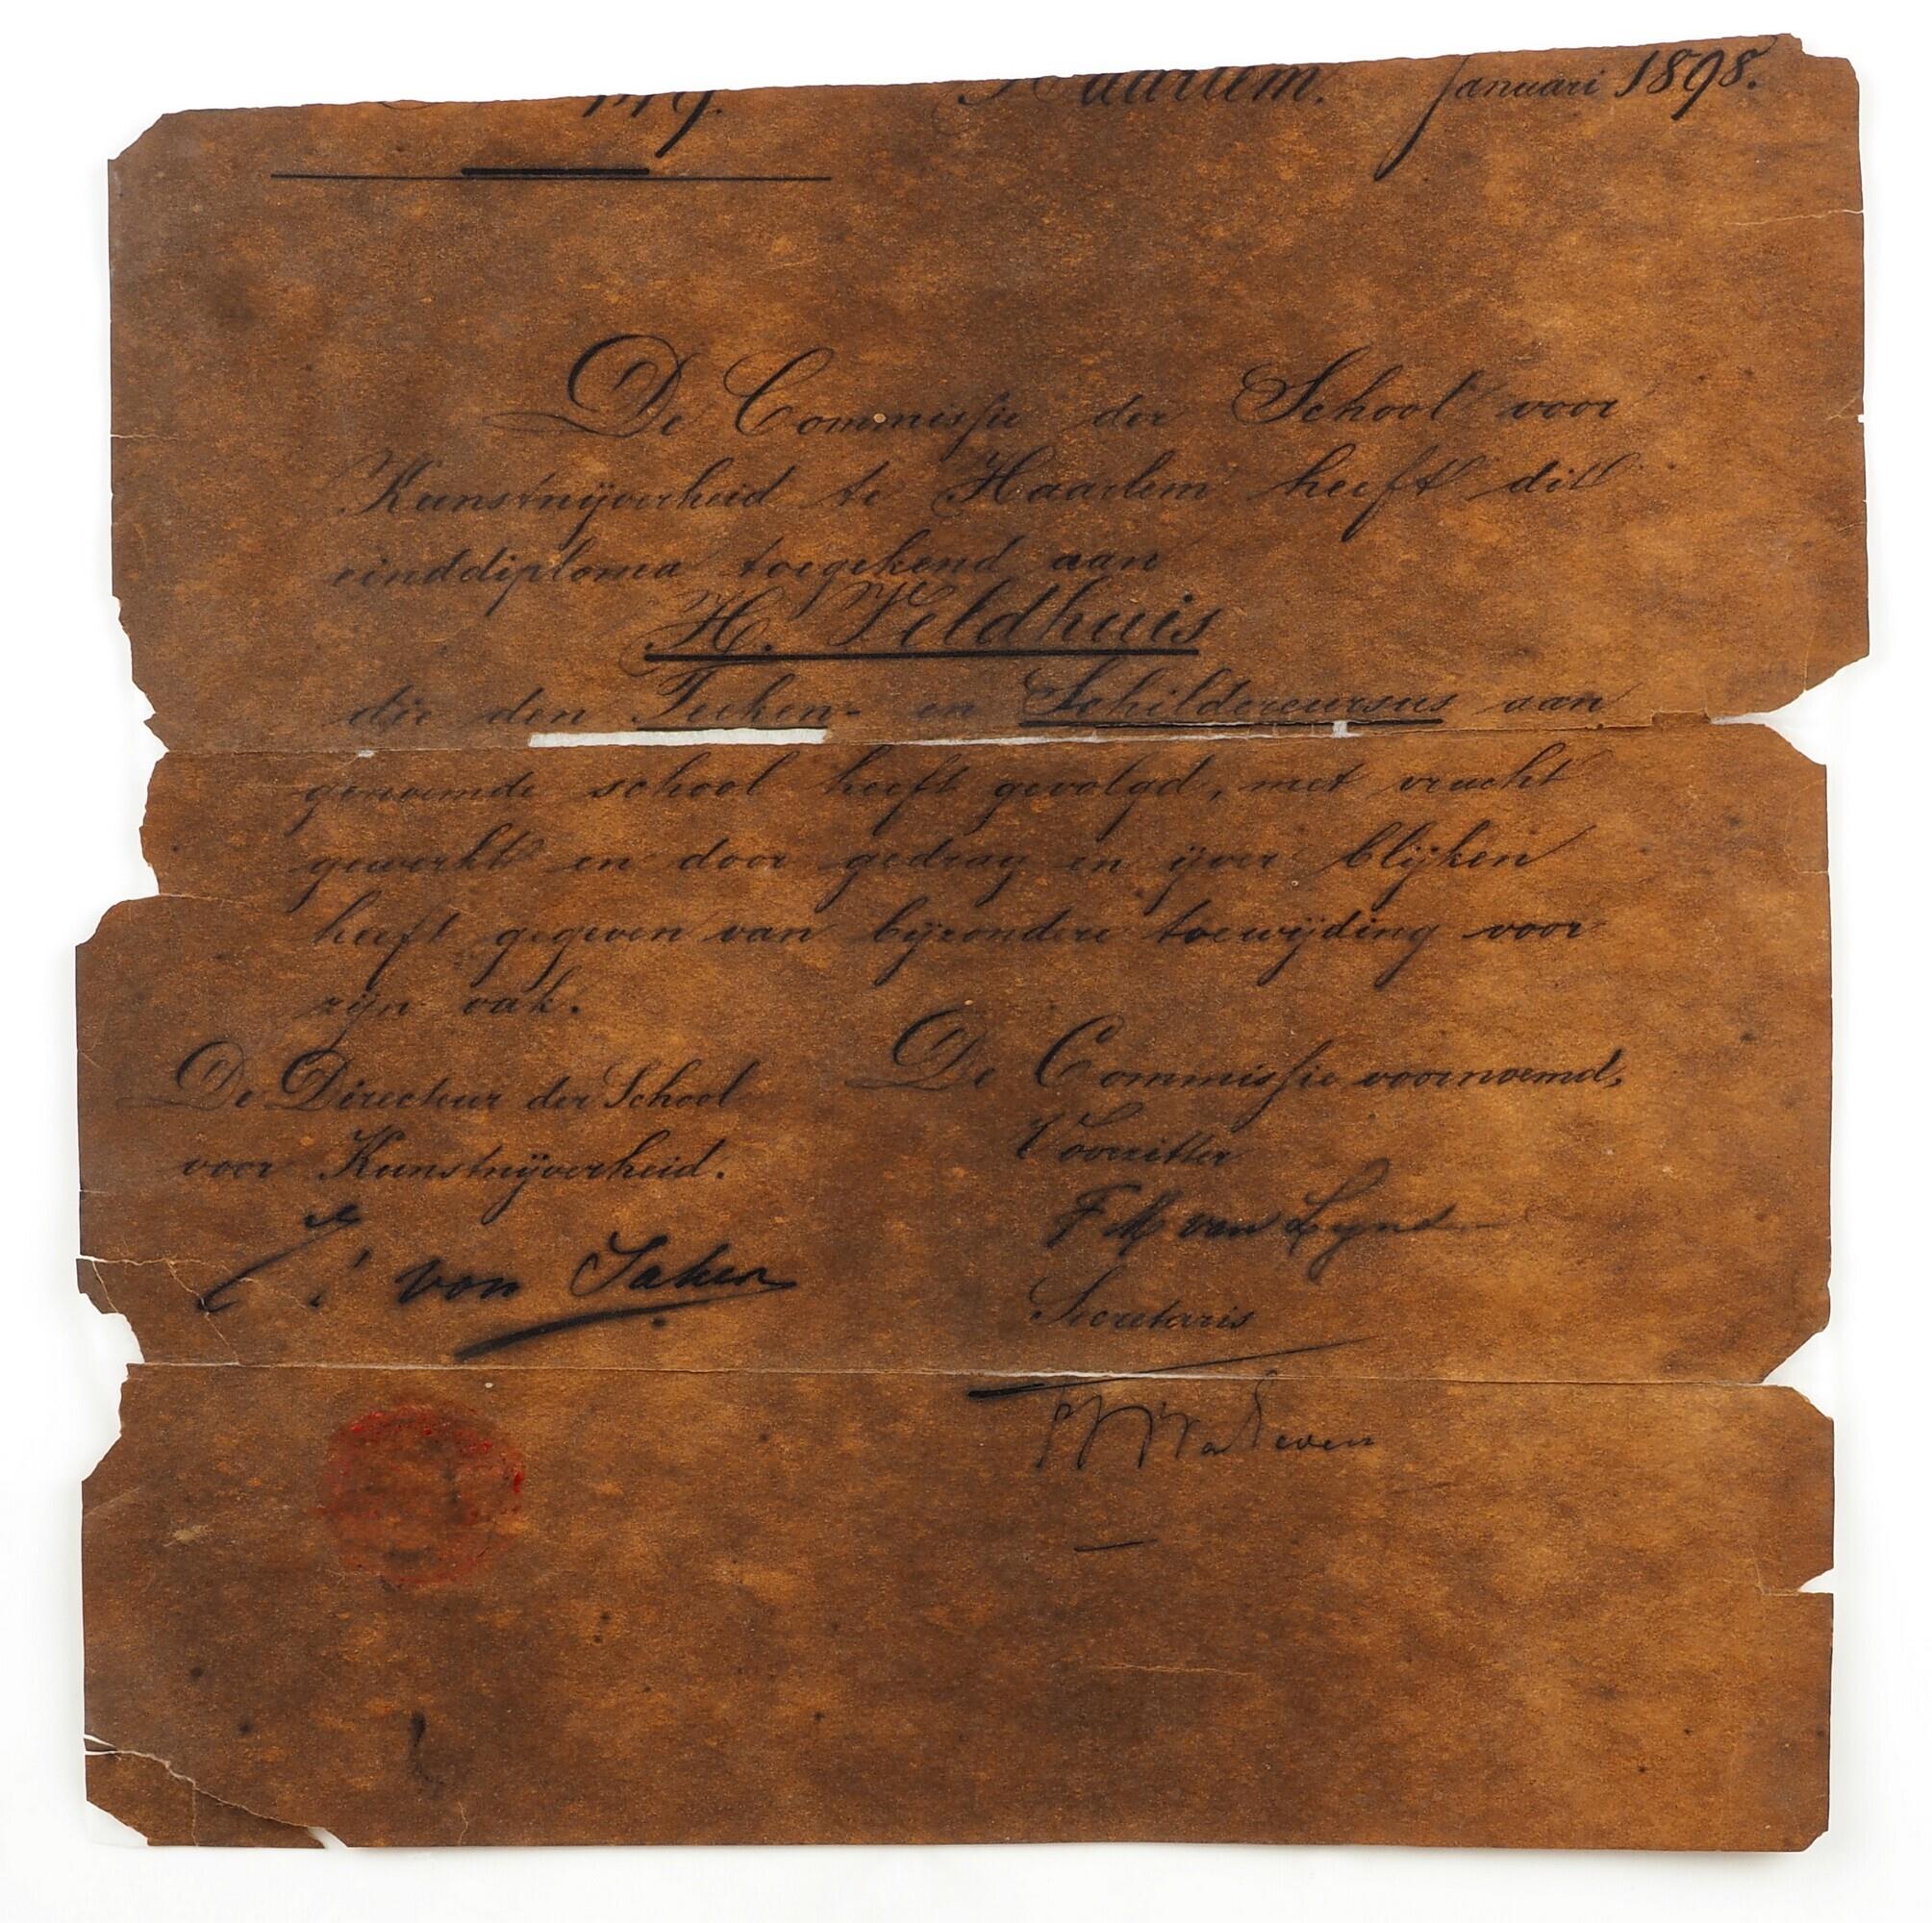 Haarlem. Januari 1898.
De Commissie der School voor
Kunstnijverheid te Haarlem heeft dit
einddiploma toegekend aan
H. Veldhuis
die den Teeken- en Schildercursus aan
genoemde school heeft gevolgd, met vrucht
gewerkt en door gedrag en ijver blijken
heeft gegeven van bijzondere toewijding voor
zijn vak.
De Directeur der School
voor Kunstnijverheid.
von Saher
De Commissie voornoemd,
Voorzitter
F M van
Secretaris